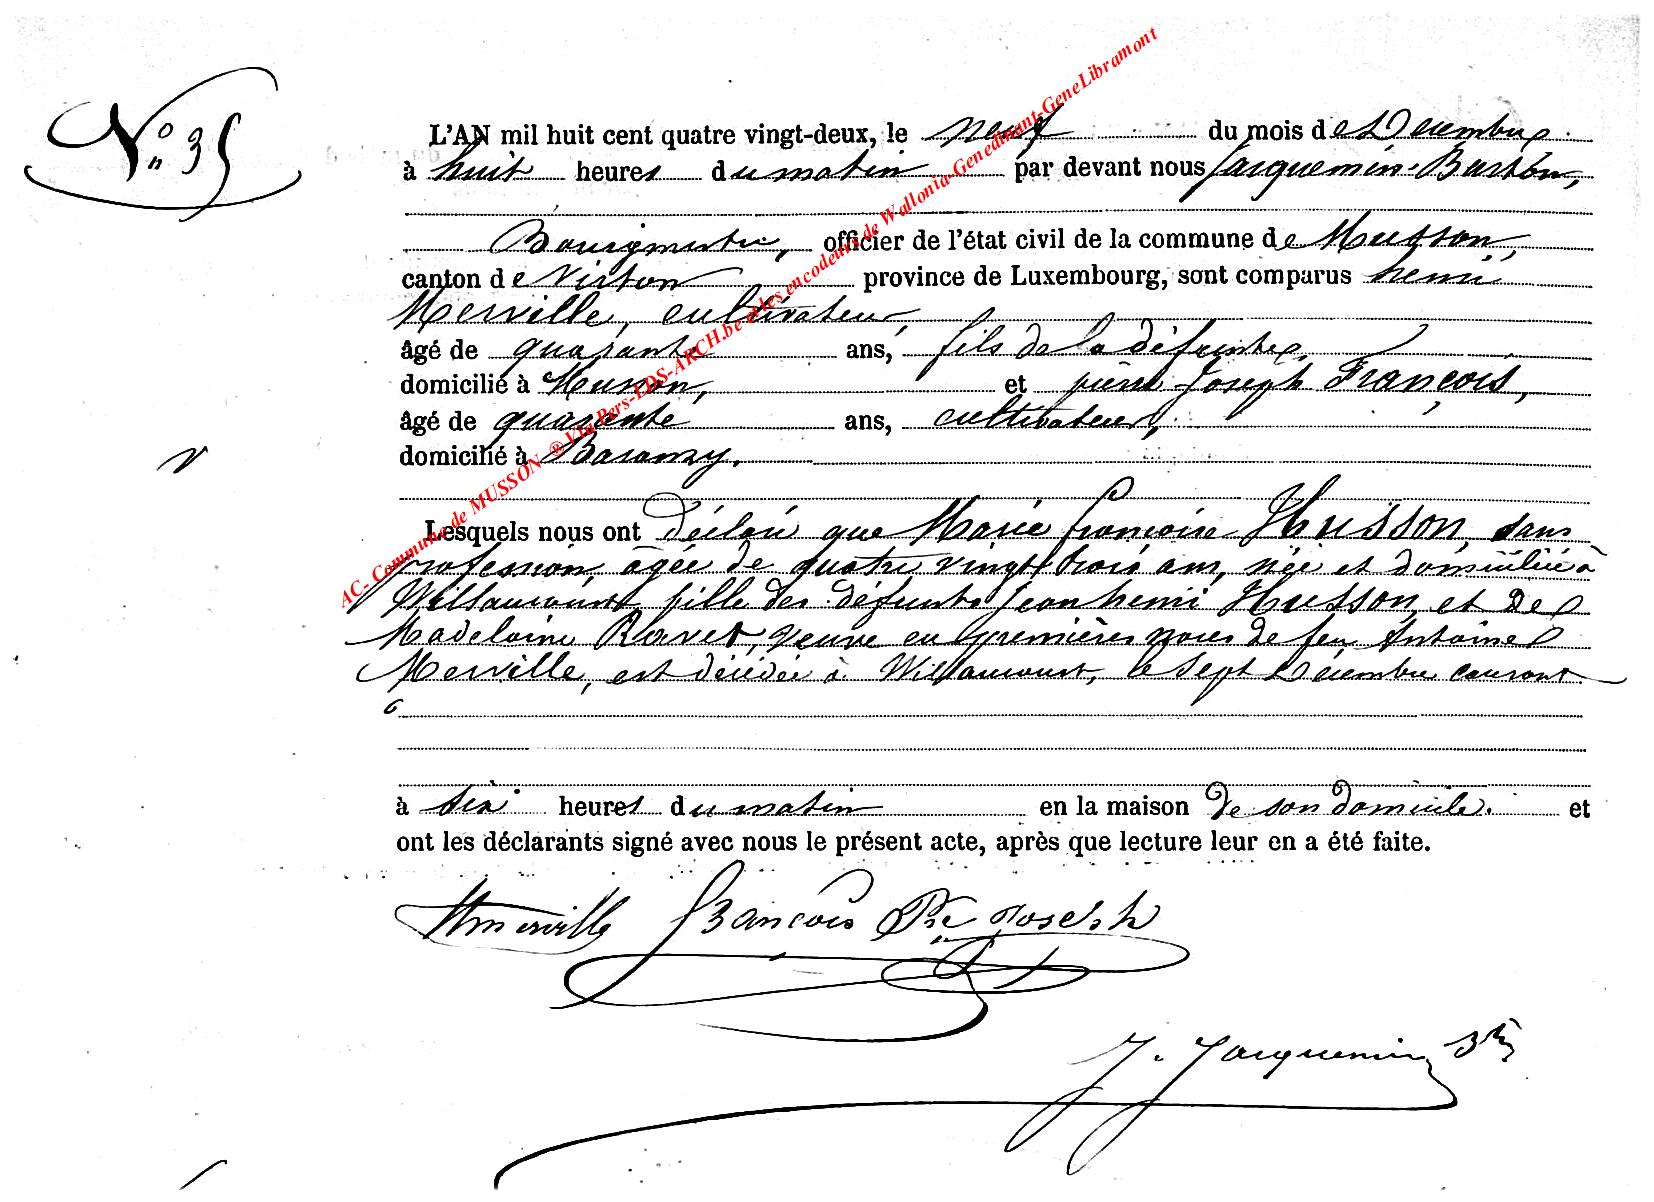 N° 35
L'AN mil huit cent quatre vingt-deux, le neuf du mois de Décembre
à huit heures du matin par devant nous Jacquemin-Barthon,
Bourgmestre, officier de l'état civil de la commune de Musson,
canton de Virton province de Luxembourg, sont comparus henri
Merville, cultivateur,
âgé de quarante ans, fils de la défunte,
domicilié à Musson, et pierre Joseph François,
âgé de quarante ans, cultivateur,
domicilié à Baranzy.
Lesquels nous ont déclaré que Marie françoise Husson, sans
profession, agée de quatre vingt trois ans, née et domiciliée à
Willancourt, fille des défunts Jean henri Husson, et de
Madelaine Ravet, veuve en premières noces de feu Antoine
Merville, est décédée à Willancourt, le sept Décembre courant
à six heures du matin en la maison de son domicile. et
ont les déclarants signé avec nous le présent acte, après que lecture leur en a été faite.
Hmerville François Pre Joseph
J. Jacquemin
AC- Commune de MUSSON ® Via Pers-LDS-ARCH.be et les encodeurs de Wallonia-Genedinant-GeneLibramont